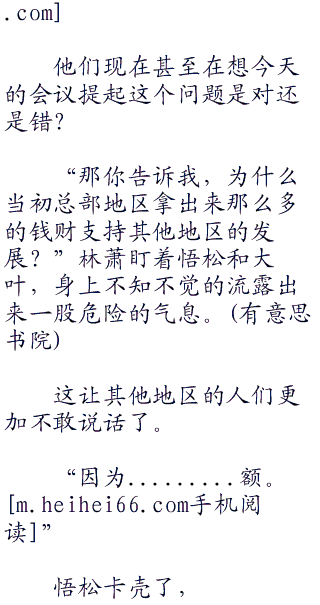 .com]
他们现在甚至在想今天
的会议提起这个问题是对还
是错？
“那你告诉我，为什么
当初总部地区拿出来那么多
的钱财支持其他地区的发
展？”林萧盯着悟松和大
叶，身上不知不觉的流露出
来一股危险的气息。(有意思
书院)
这让其他地区的人们更
加不敢说话了。
“因为.........额。
[m.heihei66.com手机阅
读]”
悟松卡壳了，